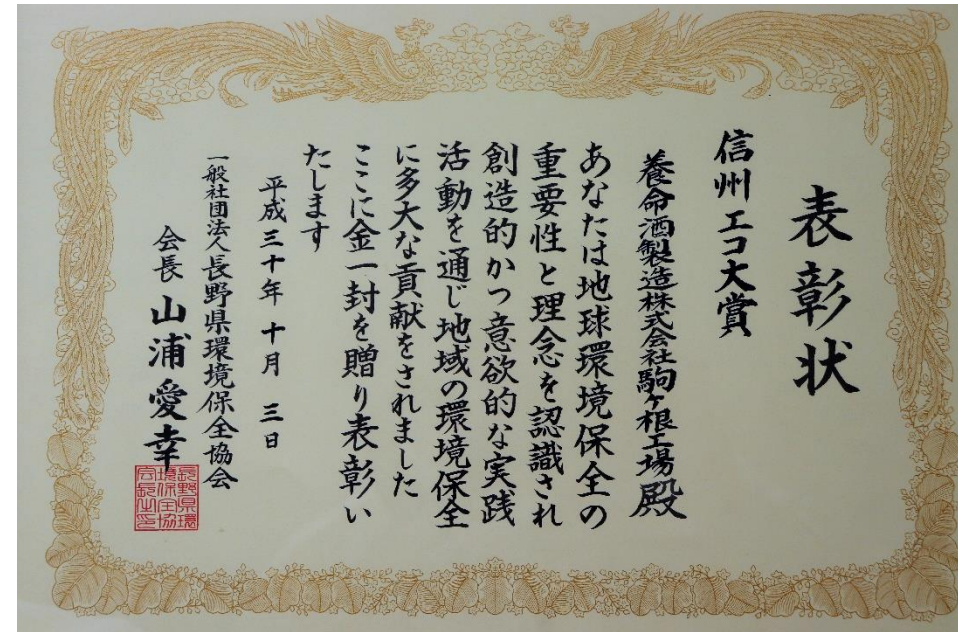 表彰状
信州エコ大賞
養命酒製造株式会社駒ヶ根工場殿
あなたは地球環境保全の
重要性と理念を認識され
創造的かつ意欲的な実践
活動を通じ地域の環境保全
に多大な貢献をされました
ここに金一封を贈り表彰い
たします
平成三十年十月三日
一般社団法人長野県環境保全協会
会長 山浦愛幸
長野県環
境保全協
会長之印